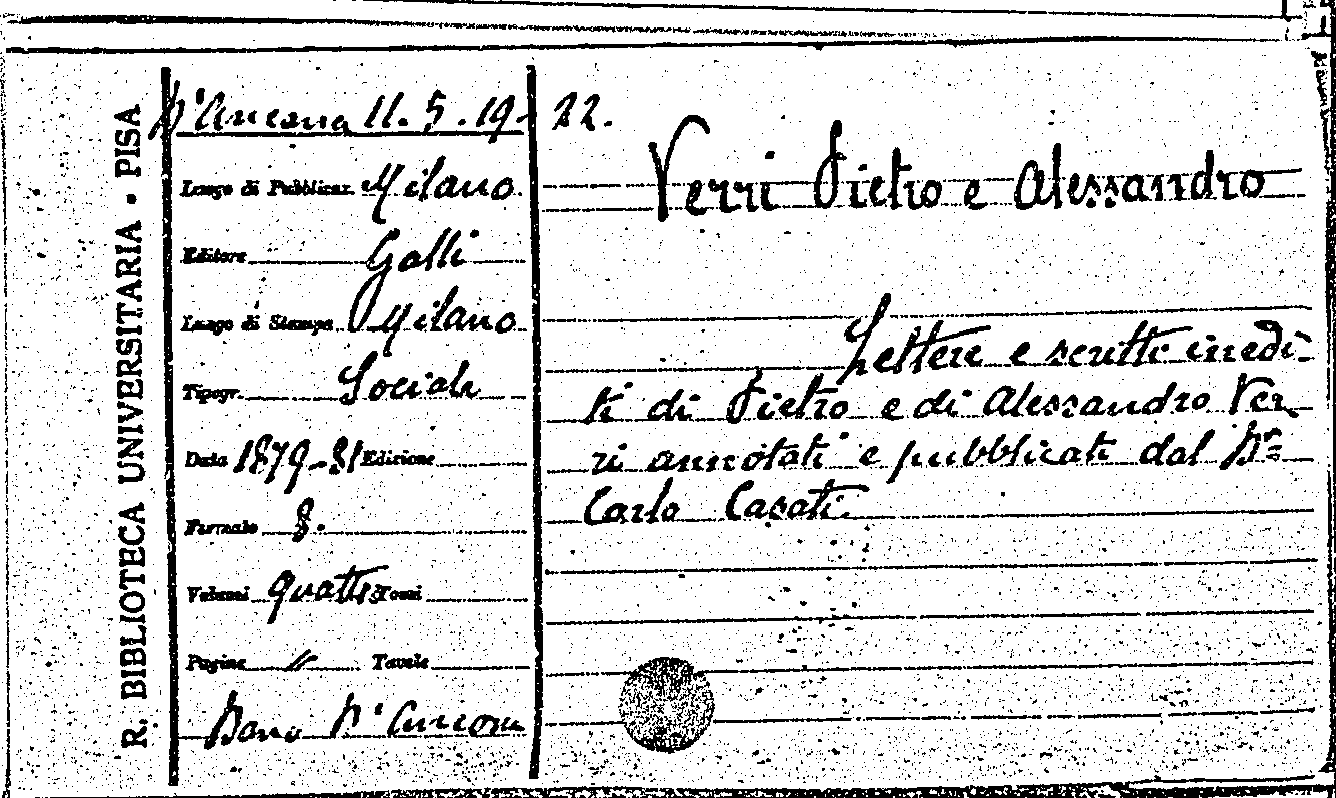 R. BIBLIOTECA UNIVERSITARIA - PISA
D'Ancona 11. 5. 19-22.
Luogo di Pubblicaz. Milano
Editore Galli
Luogo di Stampa Milano
Tipogr. Sociale
Data 1879-81 Edizione
Formato 8.
Volumi quattro Tomi
Pagine // Tavole
Dono D'Ancona
Verri Pietro e Alessandro
Lettere e scritti inedi-
ti di Pietro e di Alessandro Ver
ri annotati e pubblicati dal Dr
Carlo Casati.